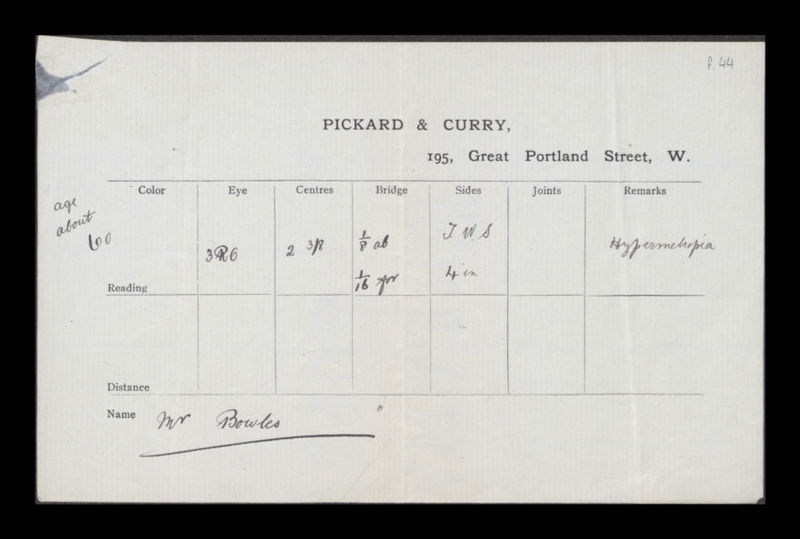 f. 44
PICKARD & CURRY,
195, Great Portland Street, W.
Color Eye Centres Bridge Sides Joints Remarks
age
about
60
3R6 2 3/8 1/8 ab T W S Hypermetropia
1/16 for 4 in
Reading
Distance
Name Mr Bowles